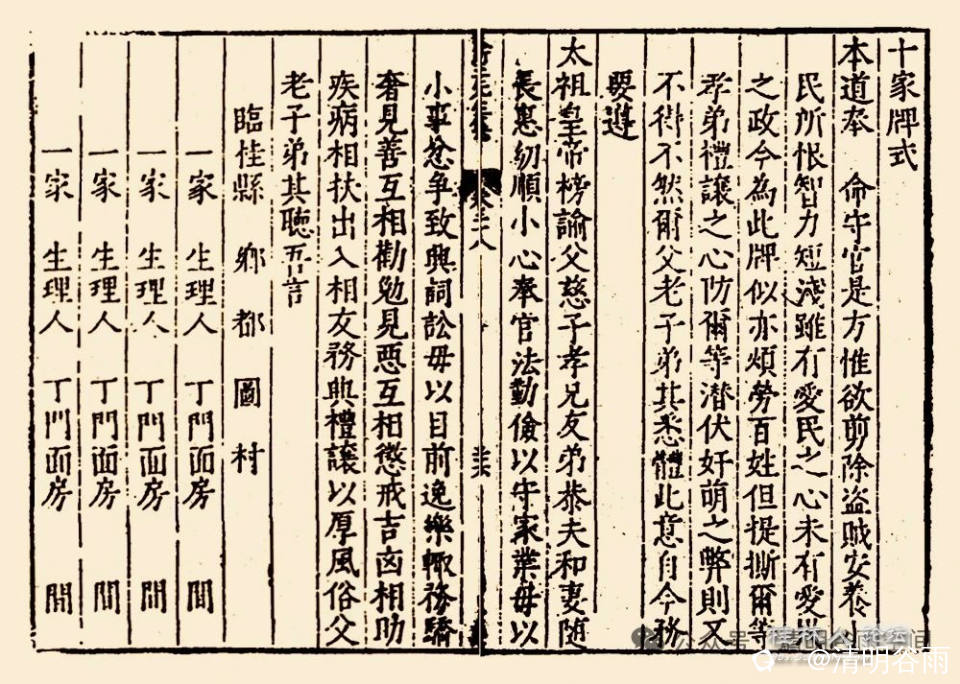 十家牌式
本道奉 命守官是方惟欲剪除盗賊安養小
民所恨智力短淺雖有愛民之心未有愛民
之政今為此牌似亦煩勞百姓但提撕爾等
孝弟禮讓之心防爾等潛伏奸萌之弊則又
不得不然爾父老子弟其悉體此意自今務
要遵
太祖皇帝榜諭父慈子孝兄友弟恭夫和妻隨
長惠幼順小心奉官法勤儉以守家業毋以
小事忿爭致興詞訟毋以目前逸樂輙務驕
奢見善互相勸勉見惡互相懲戒吉凶相助
疾病相扶出入相友務興禮讓以厚風俗父
老子弟其聽吾言
臨桂縣 鄉 都 圖 村
一家 生理人 丁門面房 間
一家 生理人 丁門面房 間
一家 生理人 丁門面房 間
一家 生理人 丁門面房 間
@清明谷雨